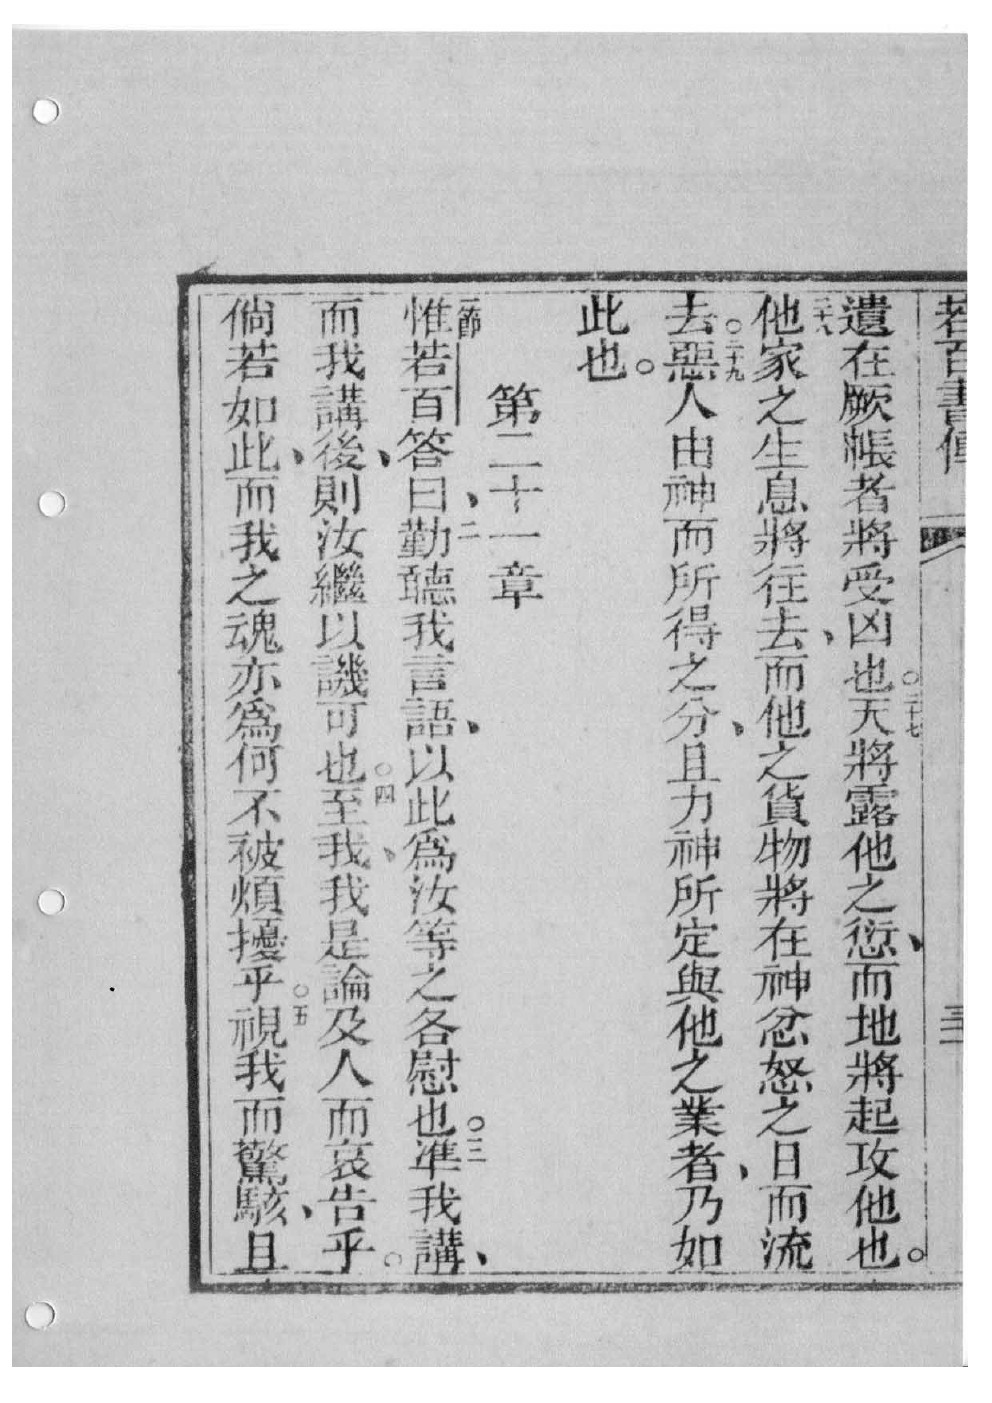 若百書傳
三十
遺在厥帳者將受凶也。○二十七天將露他之愆、而地將起攻他也。
二十八他家之生息將往去、而他之貨物將在神忿怒之日而流
去。○二十九惡人由神而所得之分、且力神所定與他之業者、乃如
此也。
第二十一章
一節惟若百答曰、二勤聽我言語、以此爲汝等之各慰也。○三準我講、
而我講後、則汝繼以譏可也。○四至我、我是論及人而哀告乎。
倘若如此、而我之魂亦爲何不被煩擾乎。○五視我而驚駭、且